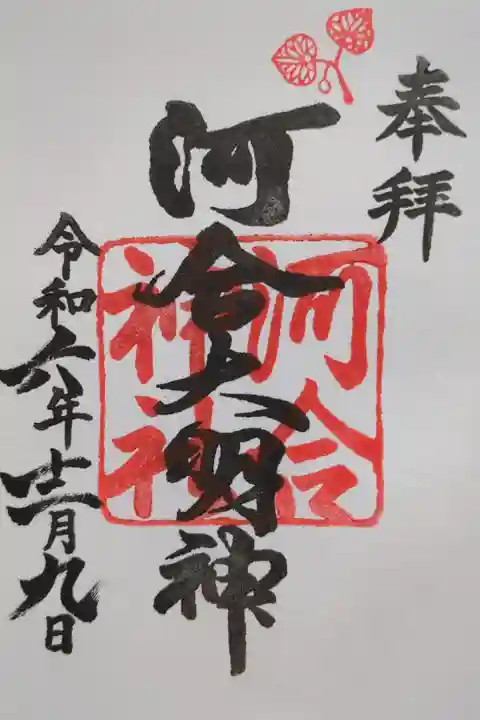 奉拝
河合大明神
河合
神社
令和六年十一月九日